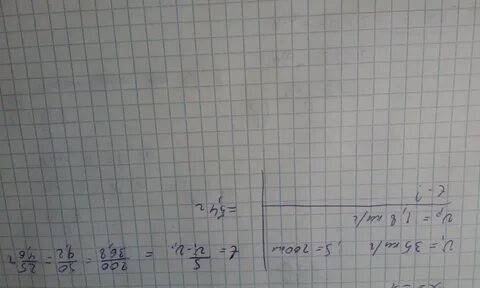 v₁ = 35 км/ч , S = 200 км
v₂ = 1,8 км/ч
t - ?
t = S/(v₁-v₂) = 200/36,8 = 50/9,2 = 25/4,6 =
= 5,4 ч